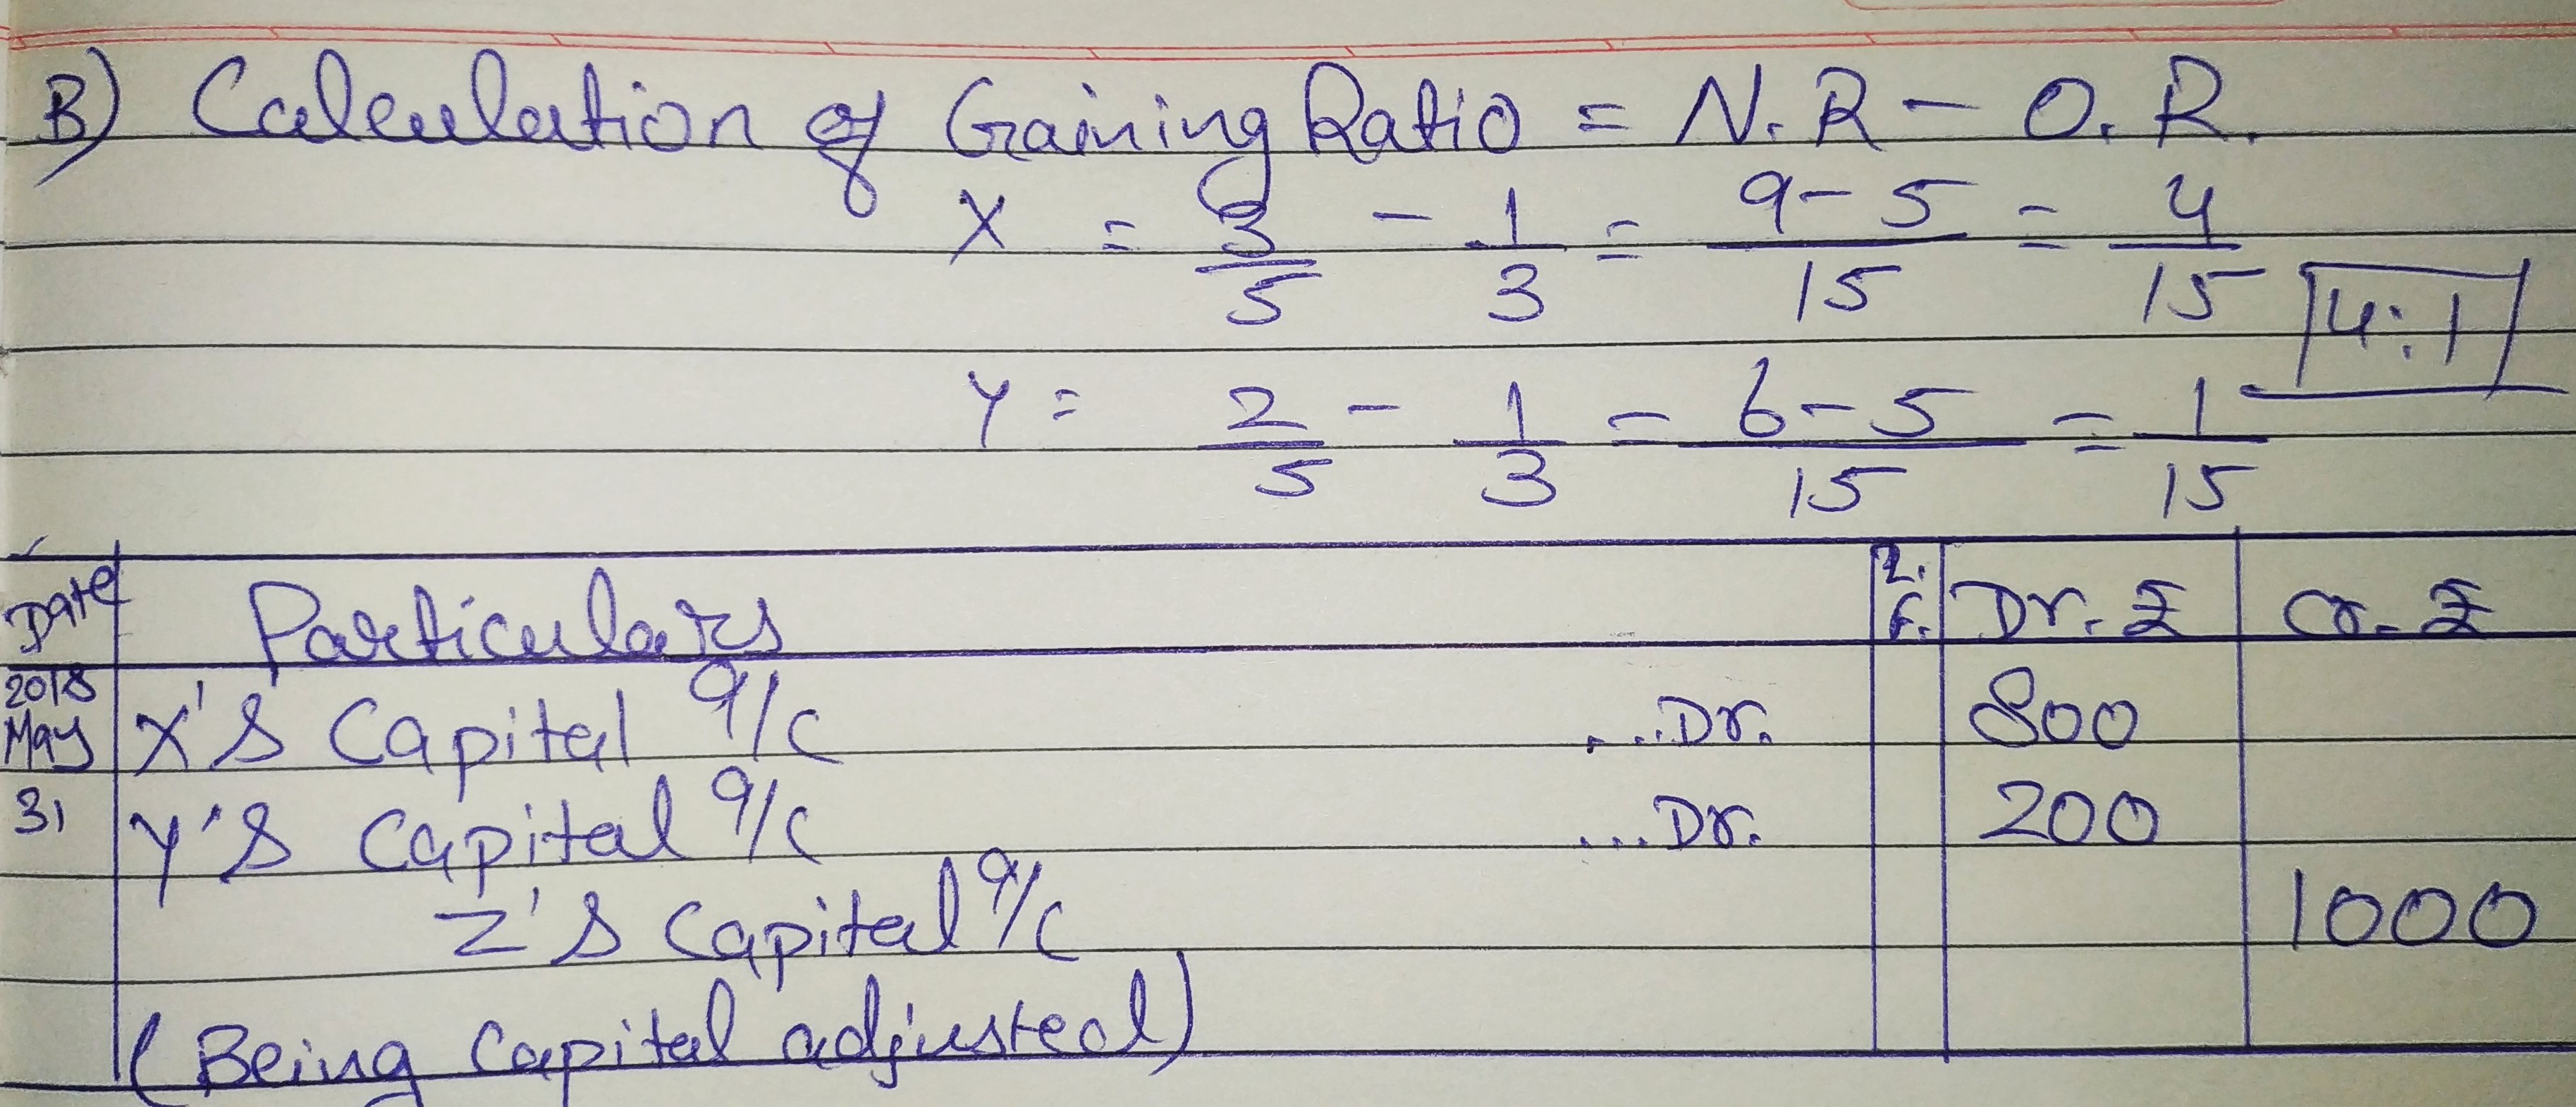 B) Calculation of Gaining Ratio = N.R - O.R.
X = 3/5 - 1/3 = 9-5/15 = 4/15
4:1
Y = 2/5 - 1/3 = 6-5/15 = 1/15
Date Particulars L.F. Dr. ₹ Cr. ₹
2018 May 31 X's Capital a/c ...Dr. 800
Y's Capital a/c ...Dr. 200
Z's Capital a/c 1000
(Being Capital adjusted)